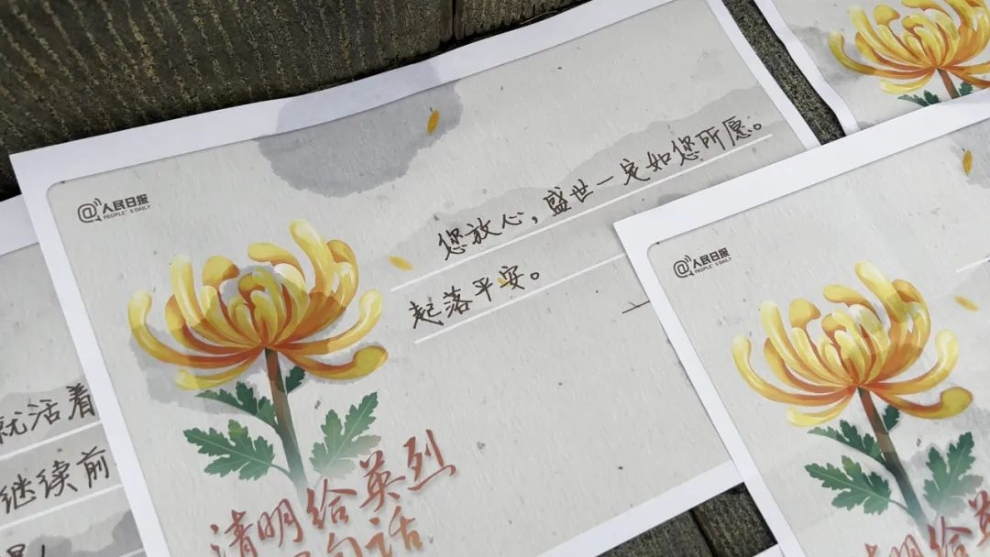 @人民日报
PEOPLE'S DAILY
您放心，盛世一定如您所愿。
起落平安。
清明给英烈
句话
就活着
继续前
@人民日报
PEOPLE'S DAILY
清明给英